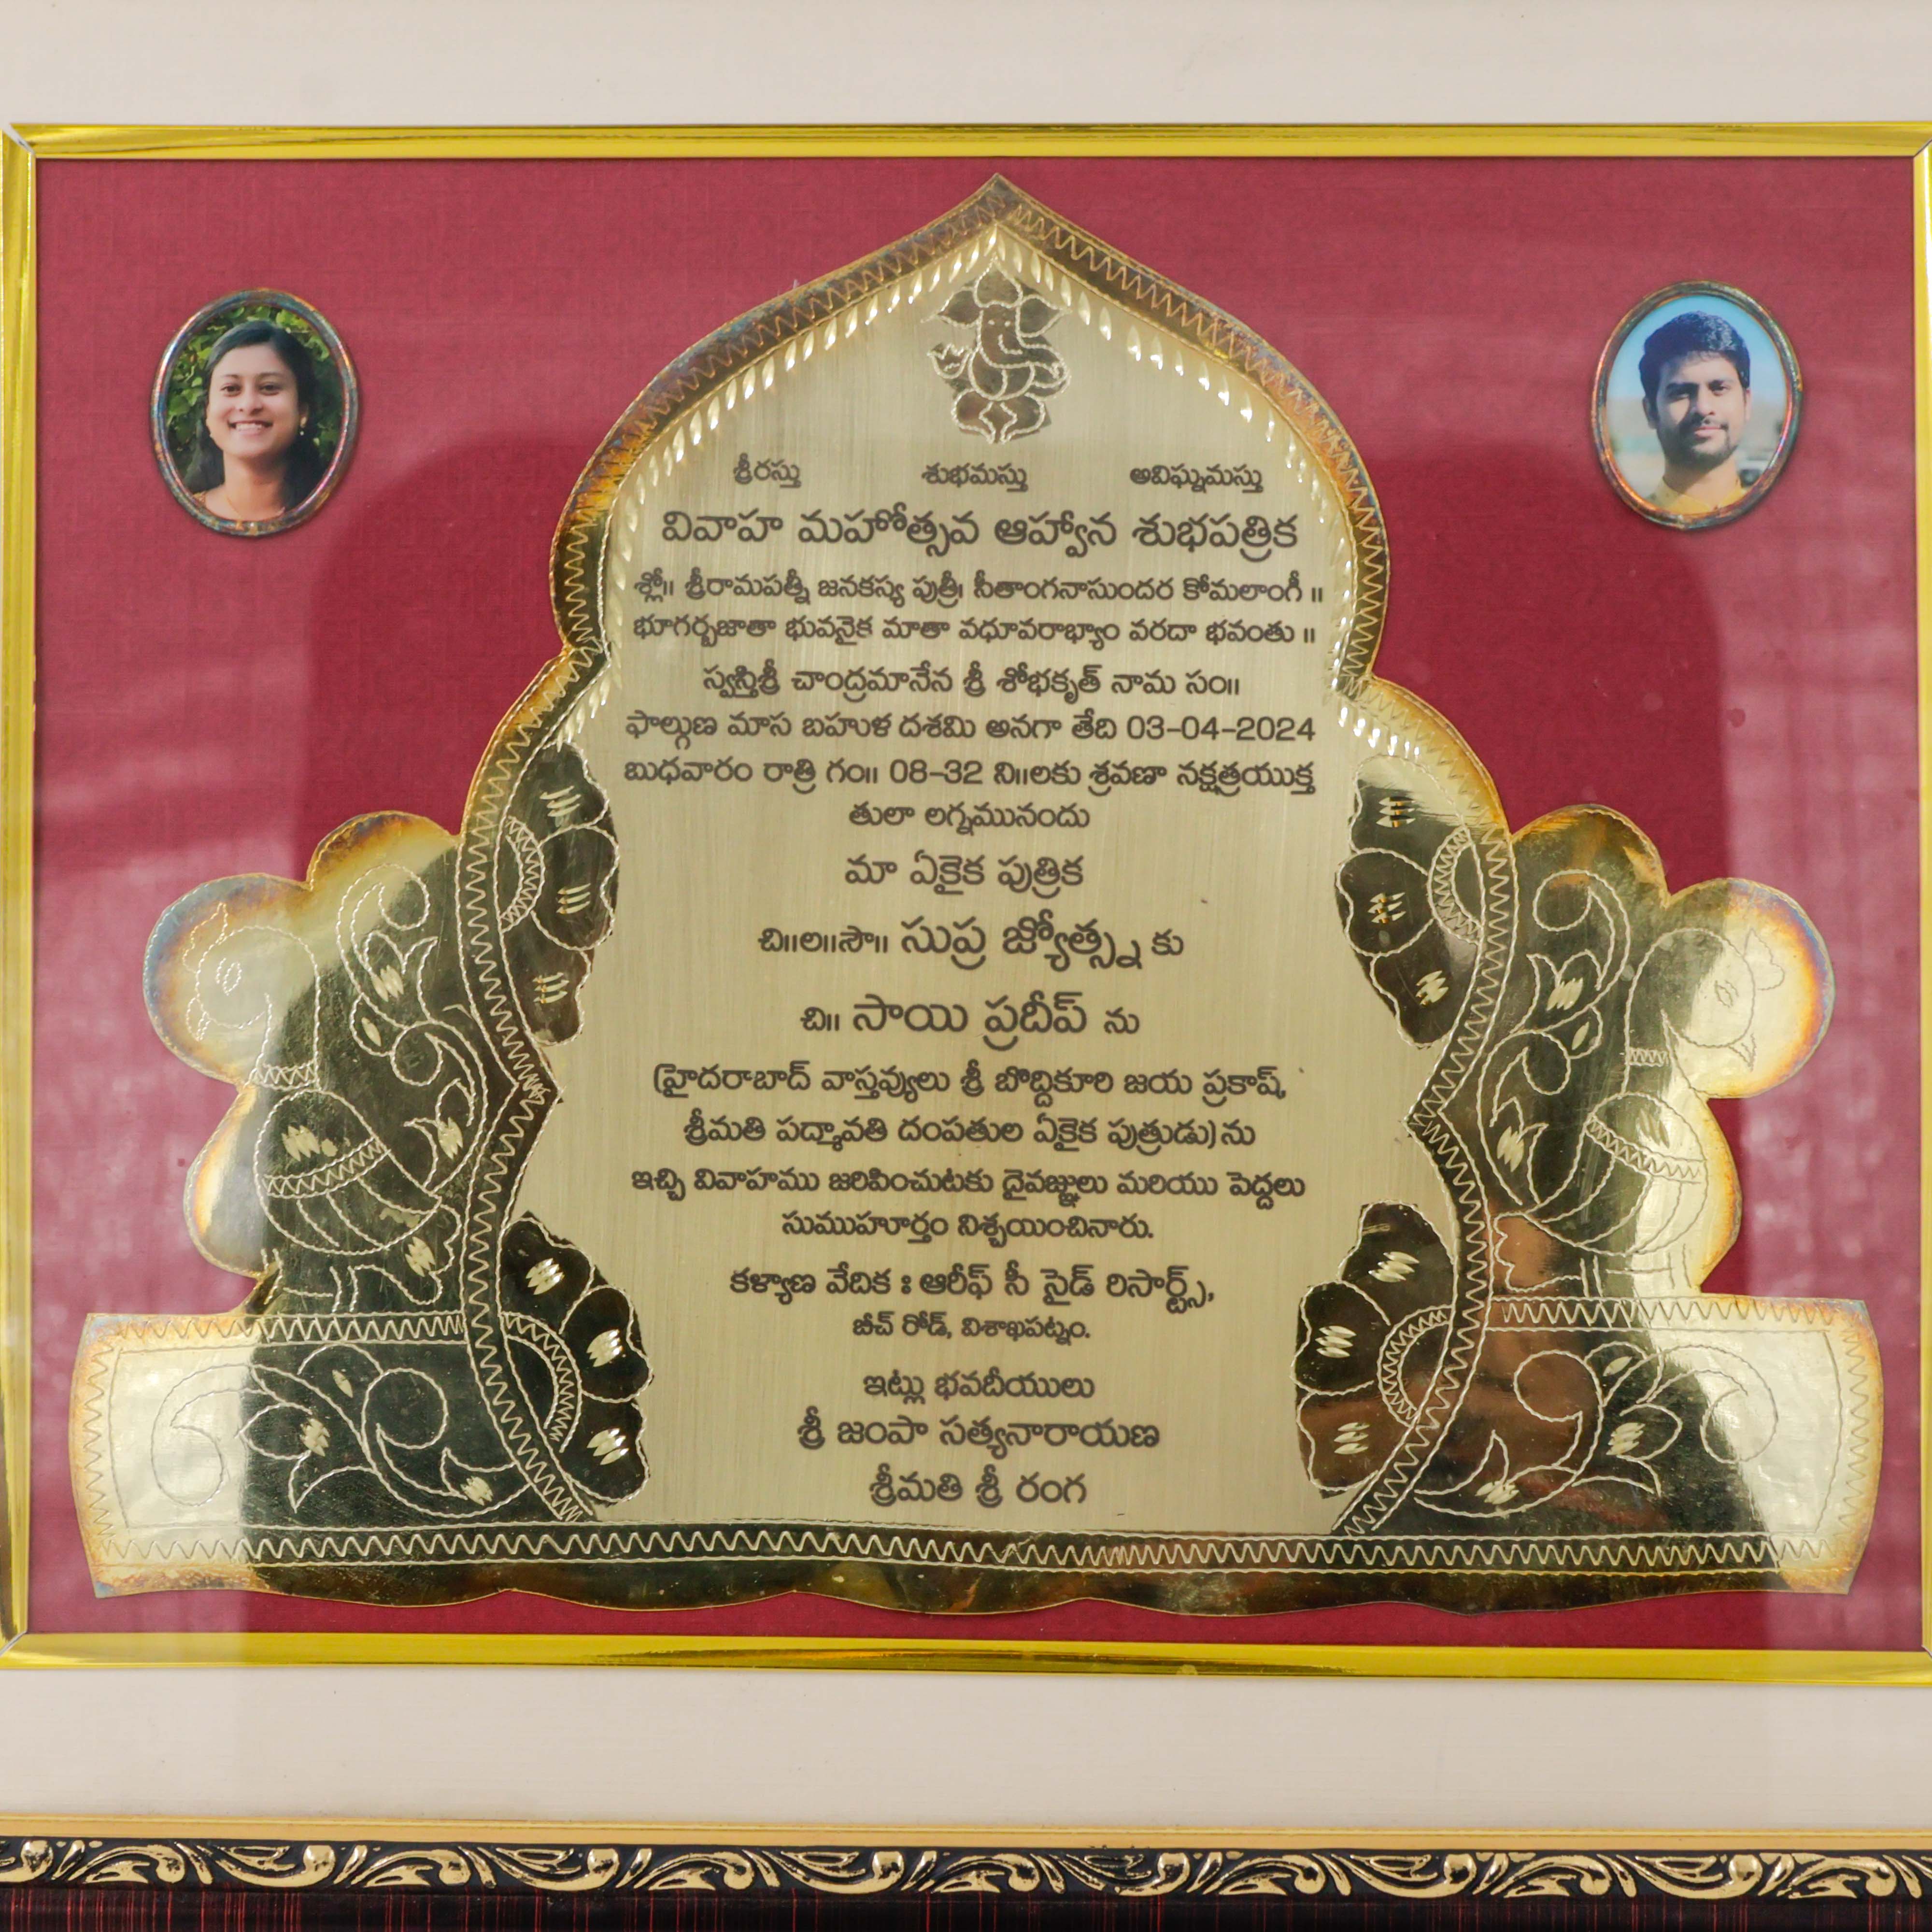 శ్రీరస్తు శుభమస్తు అవిఘ్నమస్తు
వివాహ మహోత్సవ ఆహ్వాన శుభపత్రిక
శ్లో॥ శ్రీరామపత్నీ జనకస్య పుత్రీ। సీతాంగనాసుందర కోమలాంగీ ॥
భూగర్భజాతా భువనైక మాతా వధూవరాభ్యాం వరదా భవంతు ॥
స్వస్తిశ్రీ చాంద్రమానేన శ్రీ శోభకృత్ నామ సం॥
ఫాల్గుణ మాస బహుళ దశమి అనగా తేది 03-04-2024
బుధవారం రాత్రి గం॥ 08-32 ని॥లకు శ్రవణా నక్షత్రయుక్త
తులా లగ్నమునందు
మా ఏకైక పుత్రిక
చి॥ల॥సౌ॥ సుప్ర జ్యోత్స్న కు
చి॥ సాయి ప్రదీప్ ను
(హైదరాబాద్ వాస్తవ్యులు శ్రీ బొద్దికూరి జయ ప్రకాష్,
శ్రీమతి పద్మావతి దంపతుల ఏకైక పుత్రుడు) ను
ఇచ్చి వివాహము జరిపించుటకు దైవజ్ఞులు మరియు పెద్దలు
సుముహూర్తం నిశ్చయించినారు.
కళ్యాణ వేదిక : ఆరీఫ్ సీ సైడ్ రిసార్ట్స్,
బీచ్ రోడ్, విశాఖపట్నం.
ఇట్లు భవదీయులు
శ్రీ జంపా సత్యనారాయణ
శ్రీమతి శ్రీ రంగ